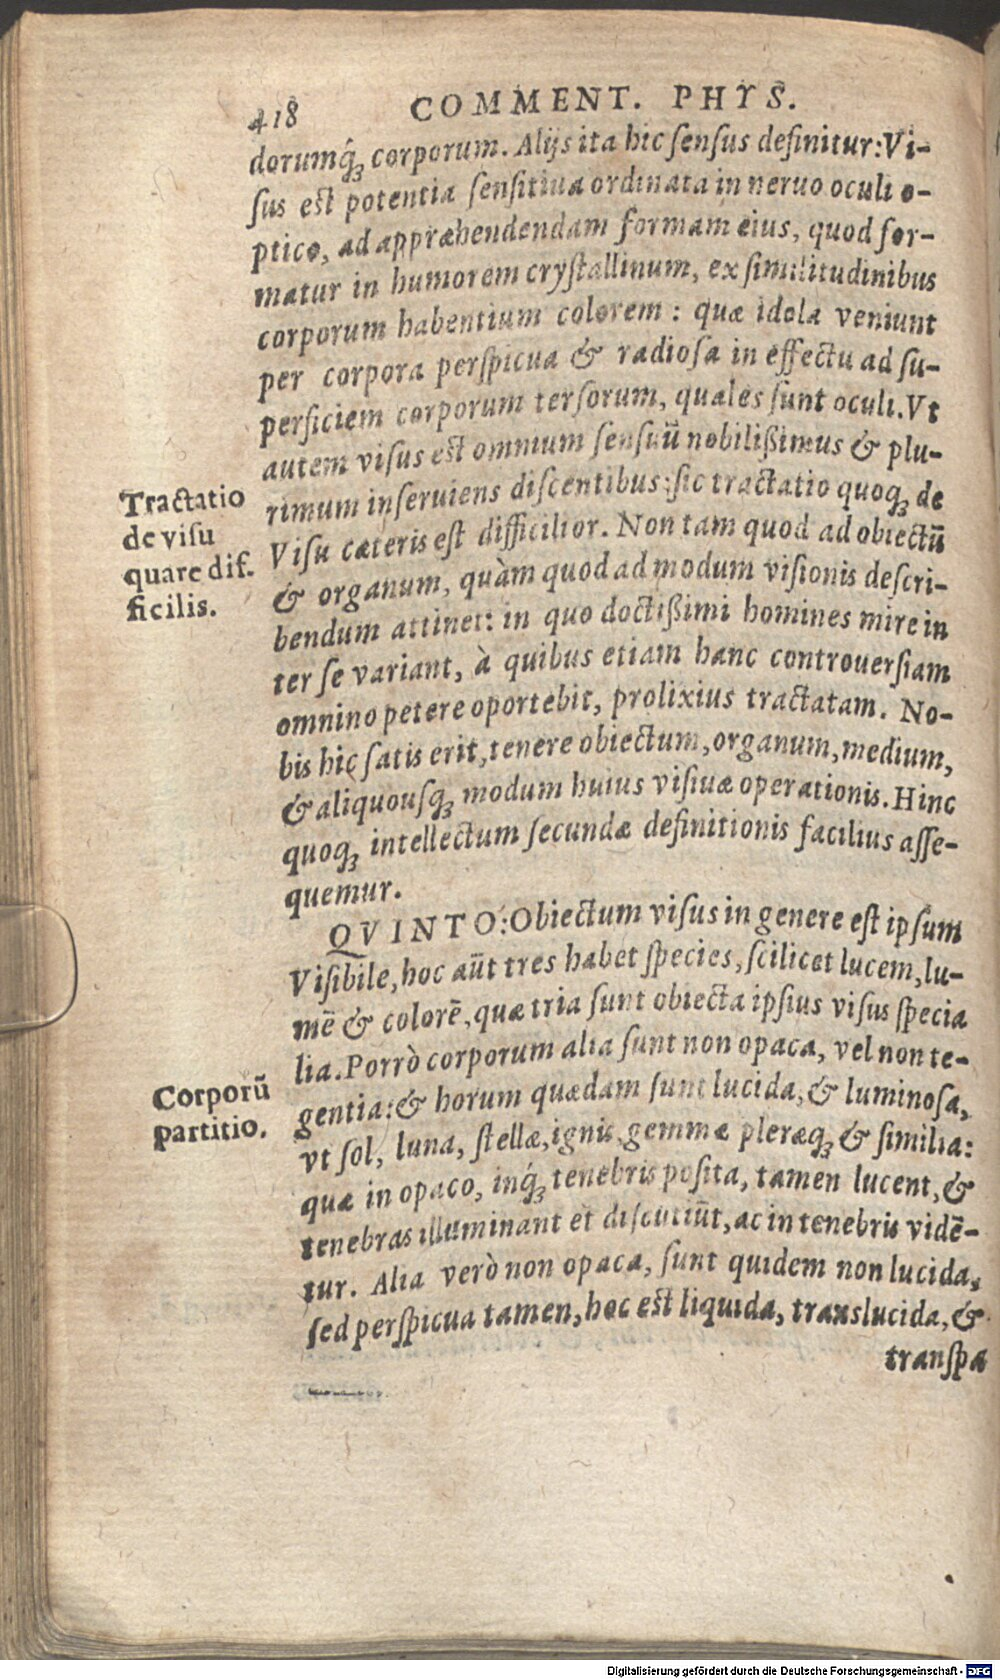 418 COMMENT. PHYS.
dorumq́ꝫ corporum. Alijs ita hic ſenſus definitur: Vi-
ſus est potentia ſenſitiua ordinata in neruo oculi o-
ptico, ad appræhendendam formam eius, quod for-
matur in humorem cryſtallinum, ex ſimilitudinibus
corporum habentium colorem : quæ idola veniunt
per corpora perſpicua & radioſa in effectu ad ſu-
perficiem corporum terſorum, quales ſunt oculi. Vt
autem viſus est omnium ſenſuũ nobilißimus & plu-
rimum inſeruiens diſcentibus: ſic tractatio quoqꝫ de
Viſu cæteris eſt difficilior. Non tam quod ad obiectũ
& organum, quàm quod ad modum viſionis deſcri-
bendum attinet: in quo doctißimi homines mire in
ter ſe variant, à quibus etiam hanc controuerſiam
omnino petere oportebit, prolixius tractatam. No-
bis hic ſatis erit, tenere obiectum, organum, medium,
& aliquouſqꝫ modum huius viſiuæ operationis. Hinc
quoqꝫ intellectum ſecundæ definitionis facilius aſſe-
quemur.
Tractatio
de viſu
quare dif-
ficilis.
QVINTO: Obiectum viſus in genere eſt ipſum
Viſibile, hoc aũt tres habet ſpecies, ſcilicet lucem, lu-
mẽ & colorẽ, quæ tria ſunt obiecta ipſius viſus ſpecia
lia. Porrò corporum alia ſunt non opaca, vel non te-
gentia: & horum quædam ſunt lucida, & luminoſa,
vt ſol, luna, ſtellæ, ignis, gemmæ pleræqꝫ & ſimilia:
quæ in opaco, inq́ꝫ tenebris poſita, tamen lucent, &
tenebras illuminant et diſcutiũt, ac in tenebris vidẽ-
tur. Alia verò non opaca, ſunt quidem non lucida,
ſed perſpicua tamen, hoc est liquida, translucida, &
Corporũ
partitio.
tranſpa
Digitalisierung gefördert durch die Deutsche Forschungsgemeinschaft - DFG